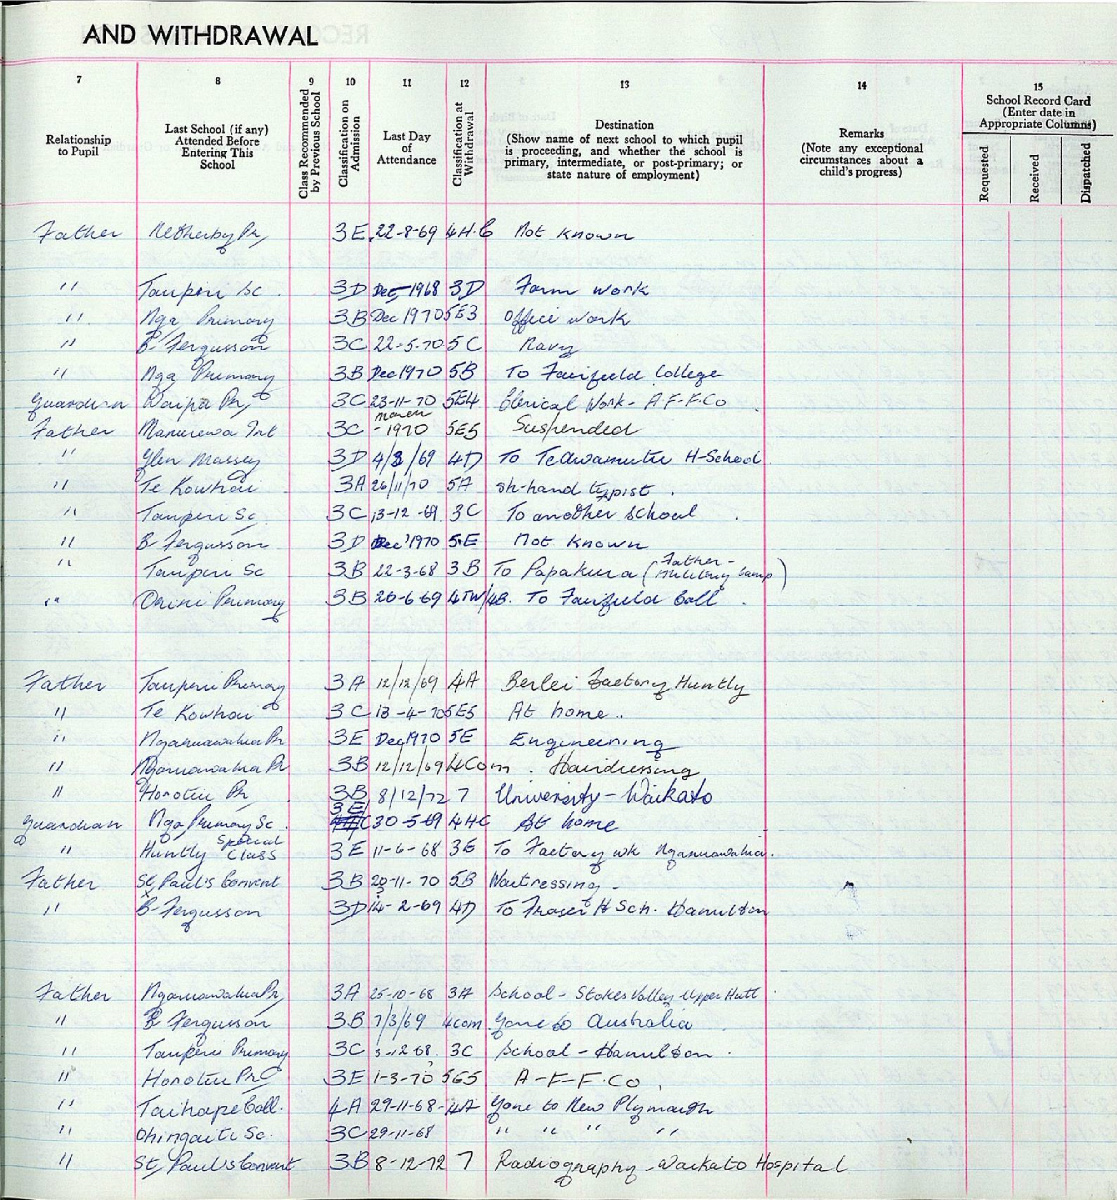 AND WITHDRAWAL
7 8 9 10 11 12 13 14 15
Relationship to Pupil
Last School (if any) Attended Before Entering This School
Class Recommended by Previous School
Classification on Admission
Last Day of Attendance
Classification at Withdrawal
Destination (Show name of next school to which pupil is proceeding, and whether the school is primary, intermediate, or post-primary; or state nature of employment)
Remarks (Note any exceptional circumstances about a child's progress)
School Record Card (Enter date in Appropriate Columns)
Requested Received Dispatched
Father Netherby Pr 3E 22-8-69 4H.C Not known
" Taupiri Sc. 3D Dec 1968 3D Farm work
" Nga Primary 3B Dec 1970 5E3 Office work
" B. Fergusson 3C 22-5-70 5C Navy
" Nga Primary 3B Dec 1970 5B To Fairfield College
Guardian Waipa Pr 3C 23-11-70 5E4 Clerical Work - A-F-F-Co
Father Manurewa Int 3C March - 1970 5E5 Suspended
" Glen Massey 3D 4/3/69 4D To Teawamutu H-School
" Te Kowhai 3A 26/11/70 5A sh-hand typist.
" Taupiri Sc. 3C 13-12-69 3C To another school.
" B Fergusson 3D Dec 1970 5E Not known
" Taupiri Sc 3B 22-3-68 3B To Papakura (Father - Military Camp)
" Orini Primary 3B 26-6-69 4TW/4B. To Fairfield Coll.
Father Taupiri Primary 3A 12/12/69 4A Berlei Factory Huntly
" Te Kowhai 3C 13-4-70 5E5 At home..
" Ngaruawahia Pr 3E Dec 1970 5E Engineering
" Ngaruawahia Pr 3B 12/12/69 4Com. Hairdressing
" Horotiu Pr 3B 8/12/72 7 University - Waikato
Guardian Nga Primary Sc. 3E 30-5-69 4HC At home
" Huntly Special Class 3E 11-6-68 3E To Factory wk Ngaruawahia.
Father St. Paul's Convent 3B 20-11-70 5B Waitressing -
" B Fergusson 3D 14-2-69 4D To Fraser H Sch. Hamilton
Father Ngaruawahia Pr 3A 25-10-68 3A School - Stokes Valley Upper Hutt
" B Fergusson 3B 7/3/69 4com. Gone to Australia
" Taupiri Primary 3C 3-12-68. 3C School - Hamilton.
" Horotiu Pr 3E 1-3-70 5E5 A-F-F-CO.
" Taihape Coll. 4A 29-11-68 - 4A Gone to New Plymouth
" Ohingaiti Sc. 3C 29-11-68 " " " "
" St. Paul's Convent 3B 8-12-72 7 Radiography - Waikato Hospital